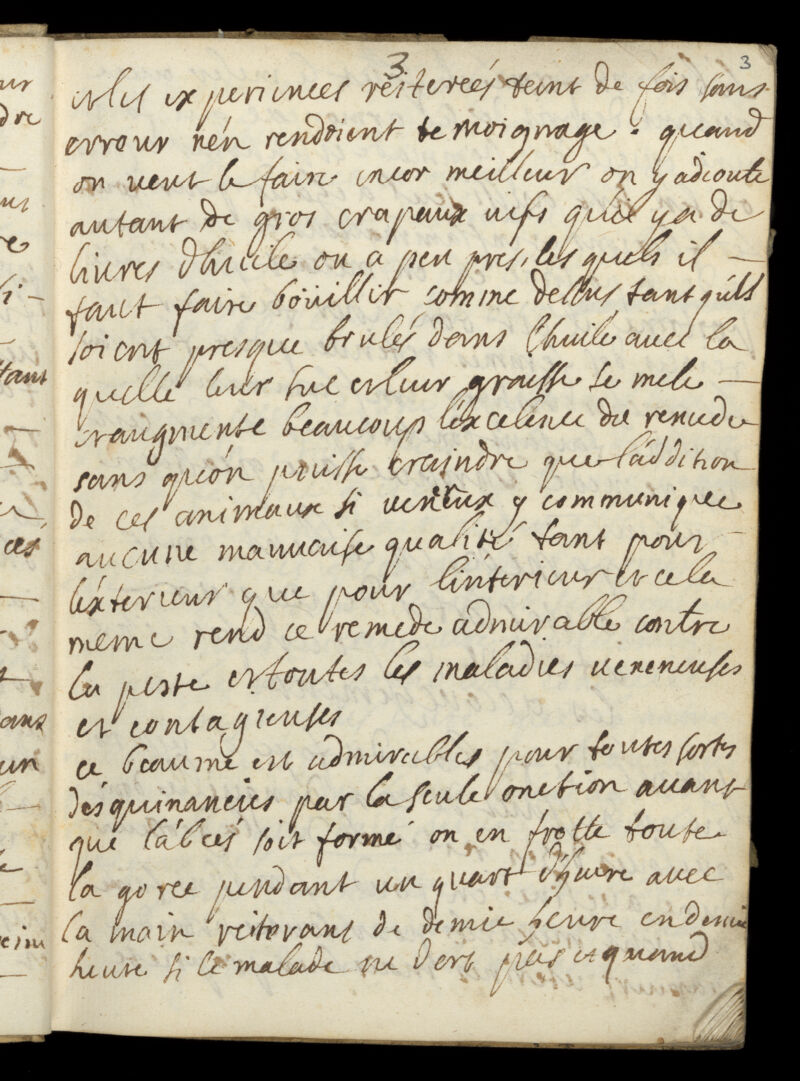 3 3
et les experiences reiterées teint de fois sans
errour n'en rendoient temoignage. quand
on veut le faire encor meilleur on y adioute
autant de gros crapeaux vifs quil ya de
livres d'huile ou a peu pres, les quels il —
faut faire boüillir comme dessus tant quils
soient presque brulés dans l'huile avec la
quelle leur suc et leur graisse se mele —
et augmente beaucoup l'excelence du remede
sans qu'on puisse craindre que l'addition
de ces animaux si veneux y communique
aucune mauvaise qualité tant pour
l'exterieur que pour l'interieur et cela
meme rend ce remede admirable contre
la peste et toutes les maladies veneneuses
et contagieuses
ce beaume est admirables pour toutes sortes
d'esquinancies par la seule onction avant
que l'abces soit formé on en frotte toute
la goree pendant un quart d'huere avec
la main reiterant de demie heure en demie
heure si le malade ne dort pas et quand